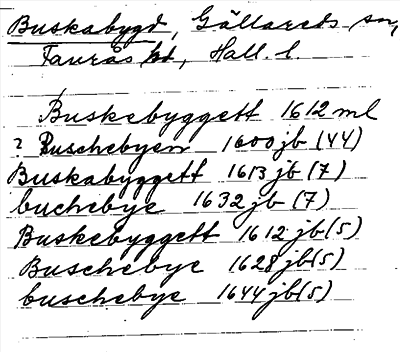 Buskabygd, Gällareds sn,
Faurås hd, Hall. l.
Buskebyggett 1612 ml
? Buschebyen 1600 jb (44)
Buskabyggett 1613 jb (7)
buchebye 1632 jb (7)
Buskebyggett 1612 jb (5)
Buschebye 1628 jb (5)
buschebye 1644 jb (5)